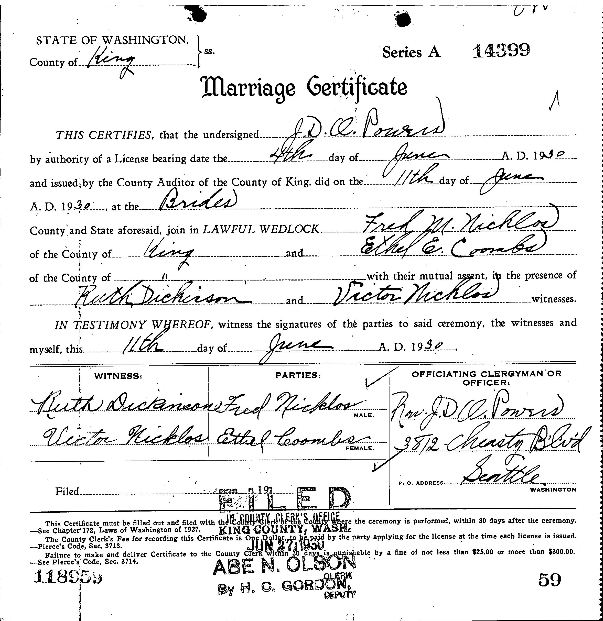 STATE OF WASHINGTON, ss.
County of King
Series A 14399
Marriage Certificate
THIS CERTIFIES, that the undersigned J. D. O. Powers
by authority of a License bearing date the 4th day of June A. D. 1930
and issued by the County Auditor of the County of King, did on the 11th day of June
A. D. 1930 at the Brides
County and State aforesaid, join in LAWFUL WEDLOCK Fred M. Nicklos
of the County of King and Ethel E. Coombs
of the County of " with their mutual assent, in the presence of
Ruth Dickinson and Victor Nicklos witnesses.
IN TESTIMONY WHEREOF, witness the signatures of the parties to said ceremony, the witnesses and
myself, this 11th day of June A. D. 1930
WITNESS: PARTIES: OFFICIATING CLERGYMAN OR OFFICER:
Ruth Dickinson Fred Nicklos MALE. Rev. J D O. Powers
Victor Nicklos Ethel Coombs FEMALE. 3812 Cheasty Blvd
P. O. ADDRESS. Seattle
WASHINGTON
Filed 191
FILED
IN COUNTY CLERK'S OFFICE
This Certificate must be filled out and filed with the County Clerk of the County where the ceremony is performed, within 30 days after the ceremony.
—See Chapter 172, Laws of Washington of 1927.
KING COUNTY, WASH.
The County Clerk's Fee for recording this Certificate is One Dollar, to be paid by the party applying for the license at the time each license is issued.
—Pierce's Code, Sec. 3713.
JUN 27 1930
Failure to make and deliver Certificate to the County Clerk within 30 days is punishable by a fine of not less than $25.00 or more than $300.00.
—See Pierce's Code, Sec. 3714.
ABE N. OLSON
CLERK
118959
By H. C. GORDON,
DEPUTY
59